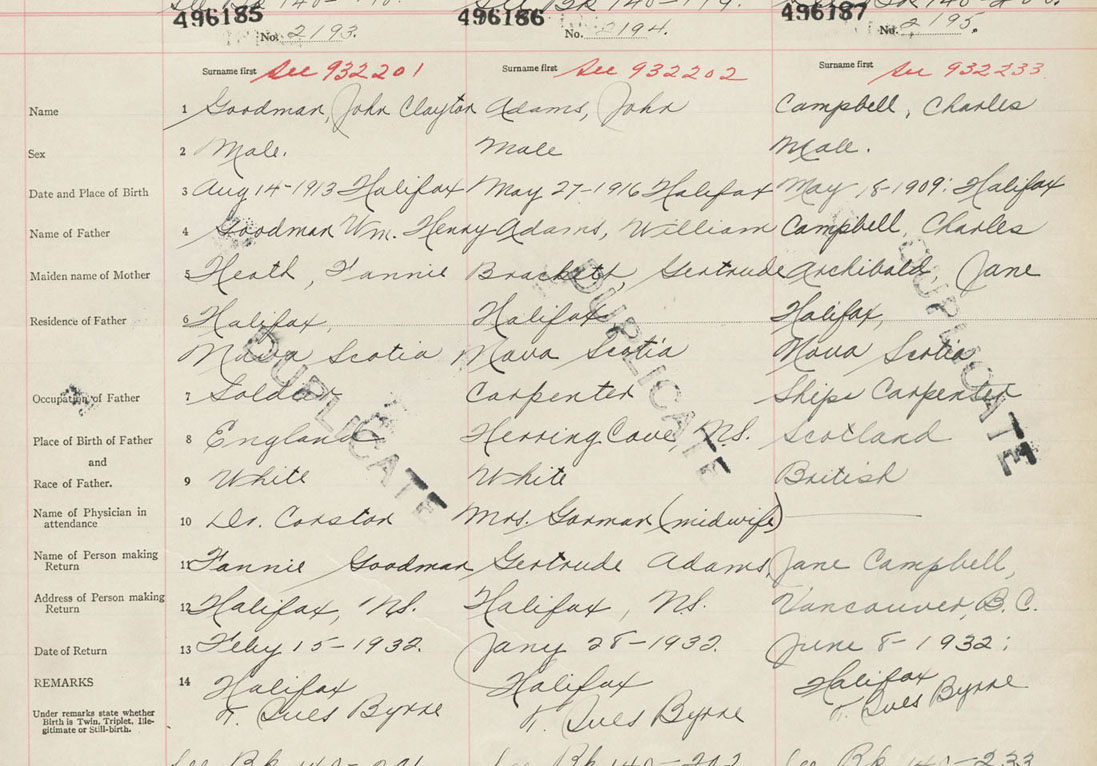 496185 496186 496187
No. 2193. No. 2194. No. 2195.
Surname first See 932201 Surname first See 932202 Surname first See 932233
Name 1 Goodman, John Clayton Adams, John Campbell, Charles
Sex 2 Male. Male Male.
Date and Place of Birth 3 Aug 14-1913 Halifax May 27-1916 Halifax May 18-1909: Halifax
Name of Father 4 Goodman Wm. Henry Adams, William Campbell, Charles
Maiden name of Mother 5 Heath, Fannie Brackett, Gertrude Archibald, Jane
Residence of Father 6 Halifax, Halifax, Halifax,
Nova Scotia Nova Scotia Nova Scotia
DUPLICATE DUPLICATE DUPLICATE
Occupation of Father 7 Soldier Carpenter Ships Carpenter
Place of Birth of Father 8 England Herring Cove, N.S. Scotland
and
Race of Father. 9 White White British
Name of Physician in
attendance 10 Dr. Corston Mrs. Gorman (midwife)
Name of Person making
Return 11 Fannie Goodman Gertrude Adams, Jane Campbell,
Address of Person making
Return 12 Halifax, N.S. Halifax, N.S. Vancouver, B.C.
Date of Return 13 Feby 15-1932. Jany 28-1932. June 8-1932:
REMARKS 14 Halifax Halifax Halifax
Under remarks state whether
Birth is Twin, Triplet, Ille-
gitimate or Still-birth.
Ives Byrne Ives Byrne Ives Byrne